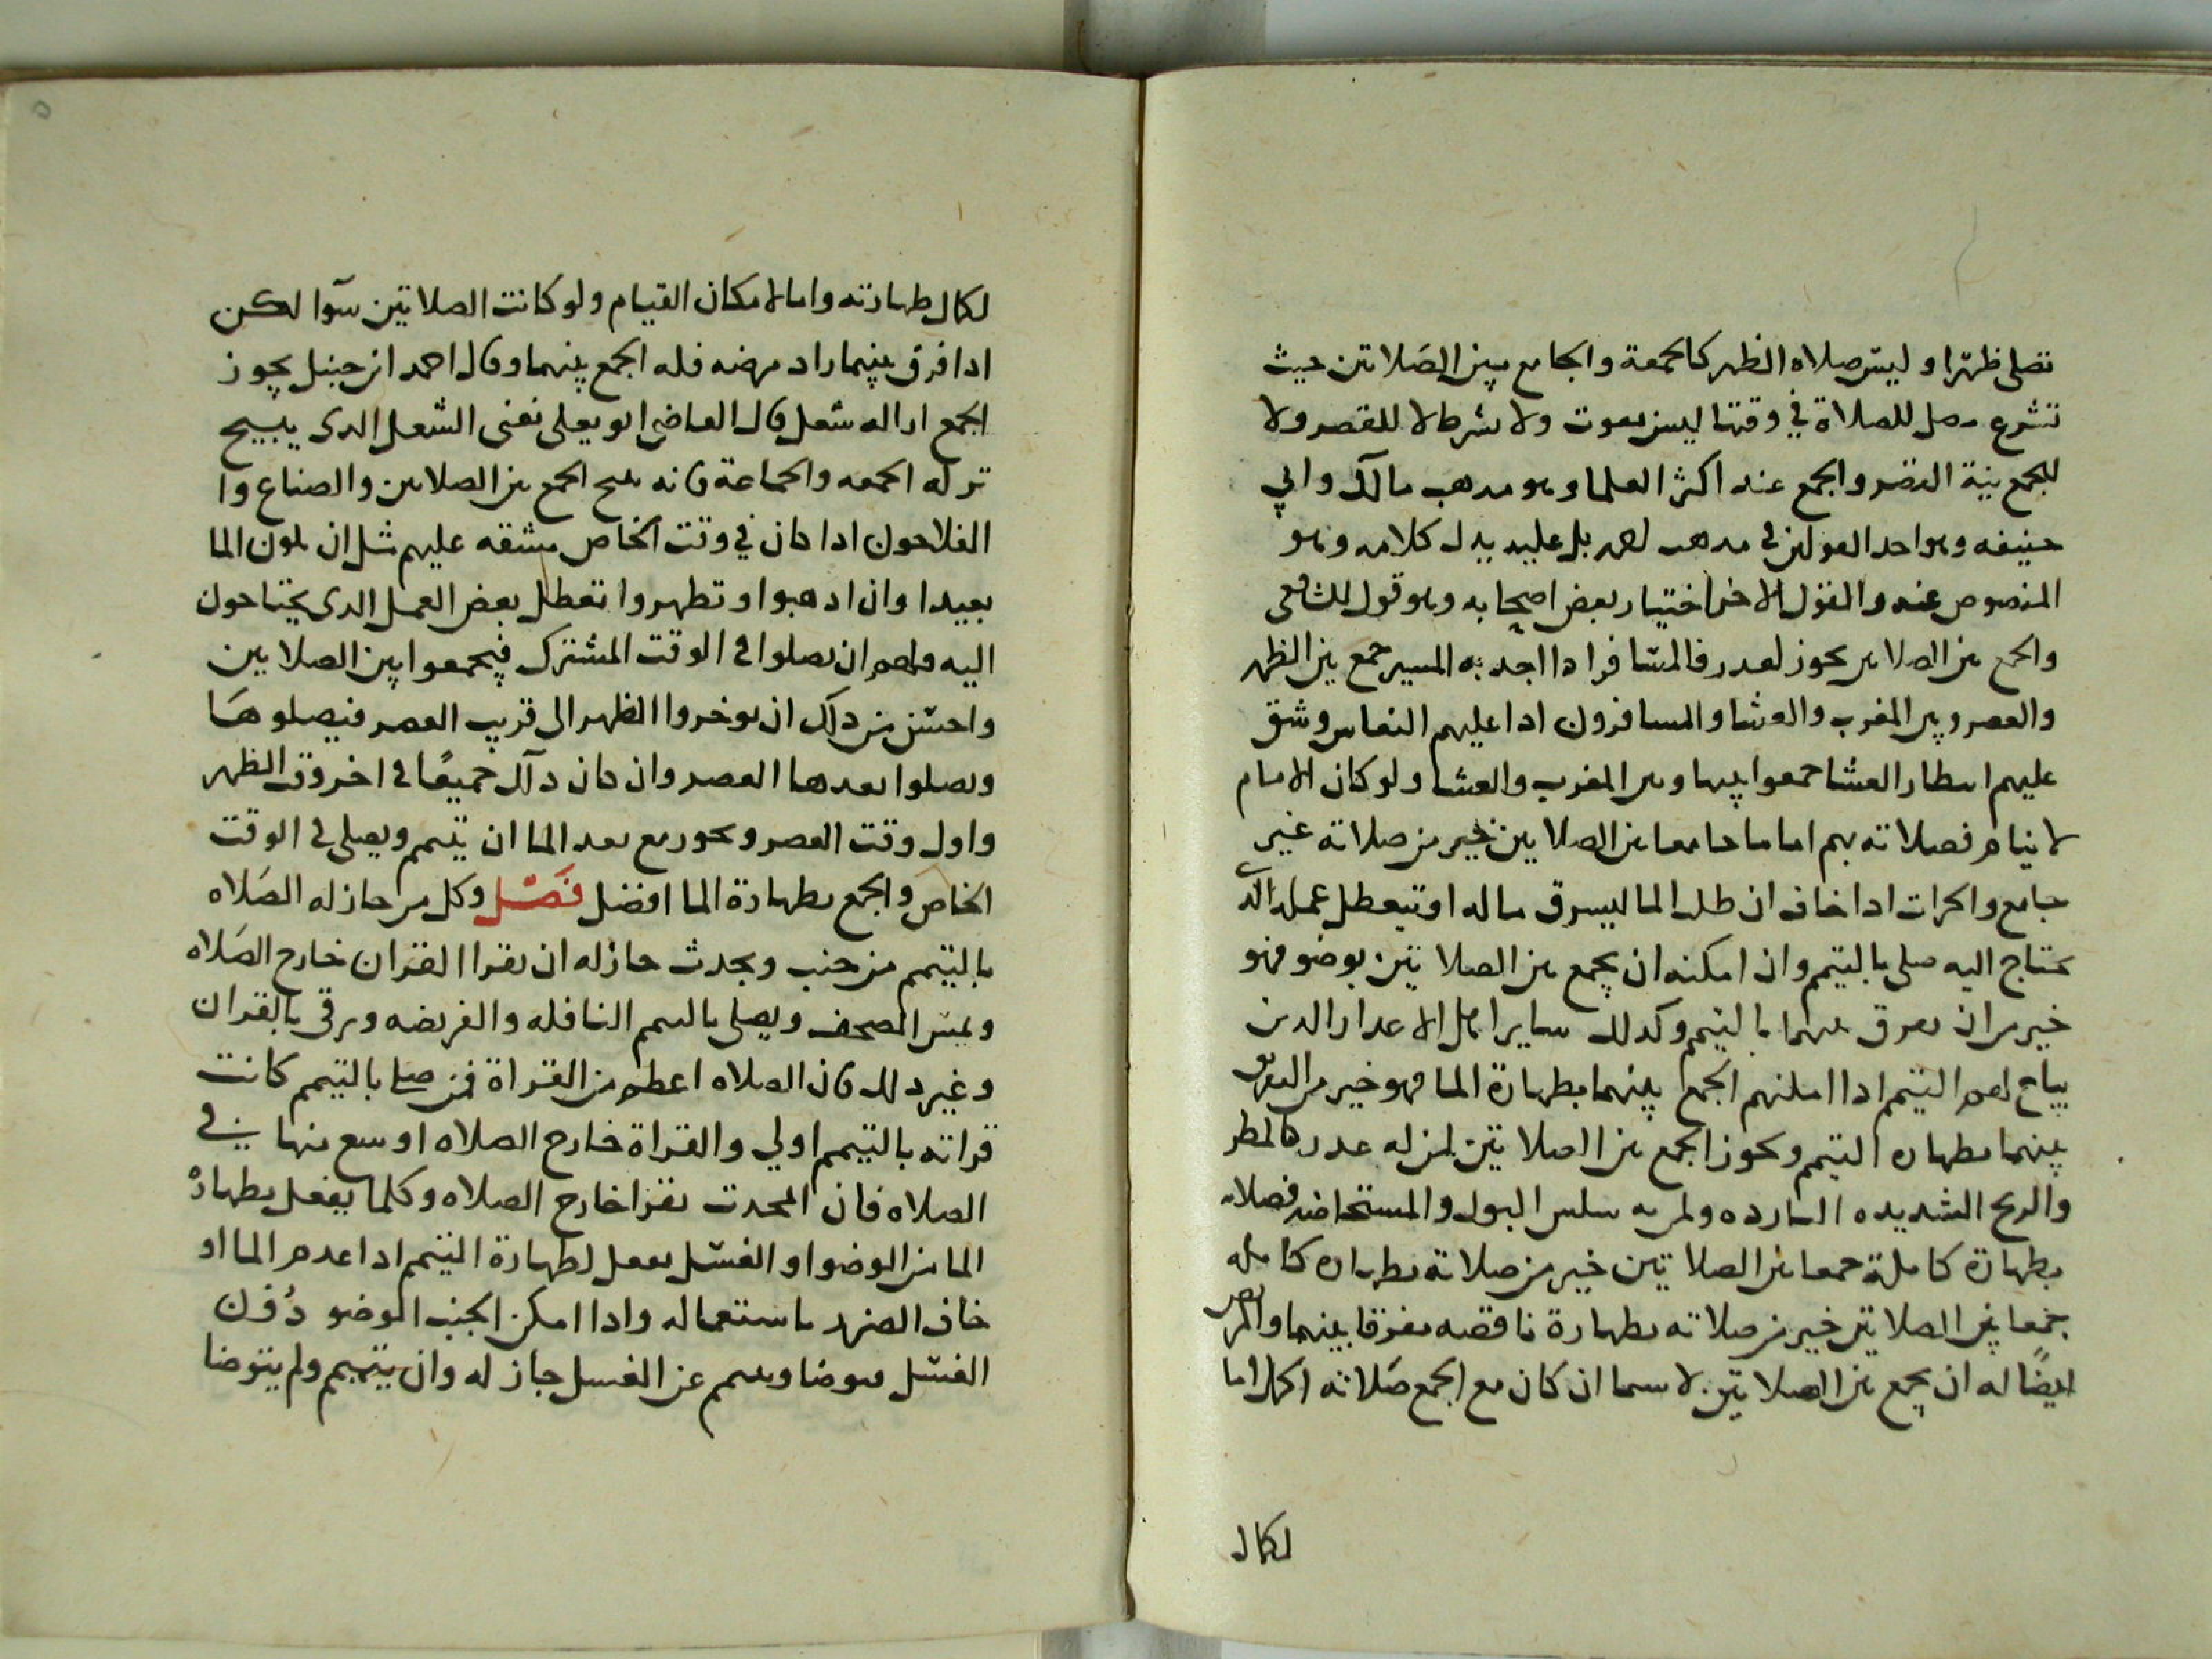 تصلى ظهرا وليس صلاه الظهر كالجمعة والجامع بين الصلاتين حيث
تشرع مصل للصلاة في وقتها ليس بفوت ولا يشرط لا للقصر ولا
للجمع نية القصر والجمع عند اكثر العلما وهو مدهب مالك وابي
حنيفه وهو احد القولين في مدهب احمد بل عليه يدل كلامه وهو
المنصوص عنه والقول الاخر اختيار بعض اصحابه وهو قول الشافعى
والجمع بين الصلاتين يجوز لعدر فالمسافر ادا اجد به المسير جمع بين الظهر
والعصر وبين المغرب والعشا والمسافرون ادا عليهم النعاس وشق
عليهم انتظار العشا جمعوا بينها وبين المغرب والعشا ولو كان الامام
لا ينام فصلاته بهم اماما جامعا بين الصلاتين خير من صلاته غير
جامع والحراث ادا خاف ان طلب الما ليسرق ماله او يتعطل عمله الدي
يحتاج اليه صلى بالتيمم وان امكنه ان يجمع بين الصلاتين بوضو فهو
خير من ان يفرق بينهما بالتيمم وكدلك ساير اهل الاعدار الدين
يباح لهم التيمم ادا امكنهم الجمع بينهما بطهارة الما فهو خير من التفريق
بينهما بطهارة التيمم ويجوز الجمع بين الصلاتين لمن له عدر كالمطر
والريح الشديده البارده ولمن به سلس البول والمستحاضه فصلاته
بطهارة كاملة جمعا بين الصلاتين خير من صلاته بطهارة كامله
جمعا بين الصلاتين خير من صلاته بطهارة ناقصه مفرقا بينهما والمريض
ايضا له ان يجمع بين الصلاتين لا سيما ان كان مع الجمع صلاته اكمل اما
لكمال
لكمال طهارته واما لامكان القيام ولو كانت الصلاتين سوا لكن
ادا فرق بينهما زاد مرضه فله الجمع بينهما وقال احمد ابن حنبل يجوز
الجمع ادا له شغل قال القاضي ابو يعلى نعنى الشغل الدى يبيح
ترك الجمعه والجماعة فانه يبيح الجمع بين الصلاتين والصناع وا
الفلاحون ادا كان في وقت الخاص مشقه عليهم مثل ان يكون الما
بعيدا وان ادهبوا وتطهروا تعطل بعض العمل الدى يحتاجون
اليه فلهم ان يصلوا في الوقت المشترك فيجمعوا بين الصلاتين
واحسن من دلك ان يوخروا الظهر الى قريب العصر فيصلوها
ويصلوا بعدها العصر وان كان دلك جميعا في اخر وقت الظهر
واول وقت العصر ويجوز مع بعد الما ان يتيمم ويصلي في الوقت
الخاص والجمع بطهارة الما افضل فصل وكل من جاز له الصلاه
بالتيمم من جنب ومحدث جاز له ان يقرا القران خارج الصلاه
ويمس المصحف ويصلي بالتيمم النافله والفريضه ويرقى بالقران
وغير دلك فان الصلاه اعظم من القراة فمن صلى بالتيمم كانت
قراته بالتيمم اولي والقراة خارج الصلاه اوسع منها في
الصلاه فان المحدث يقرا خارج الصلاه وكلما يفعل بطهارة
الما من الوضوا والغسل يفعل لطهارة التيمم ادا عدم الما او
خاف الضرر باستعماله وادا امكن الجنب الوضو دون
الغسل فتوضا وتيمم عن الغسل جاز له وان يتيمم ولم يتوضا